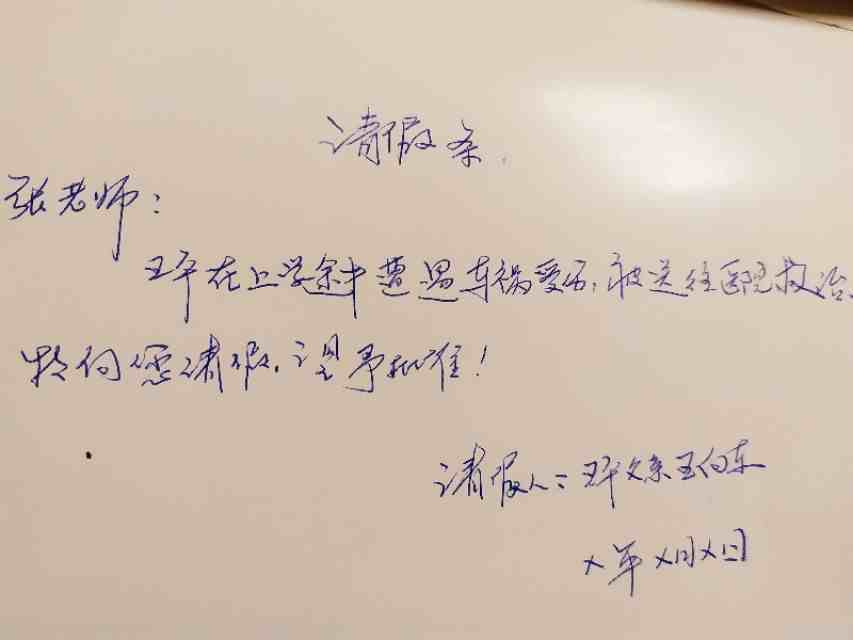 请假条
张老师：
王平在上学途中遭遇车祸受伤，被送往医院救治。
特向您请假，望予批准！
请假人：王平父亲王向东
×年×月×日